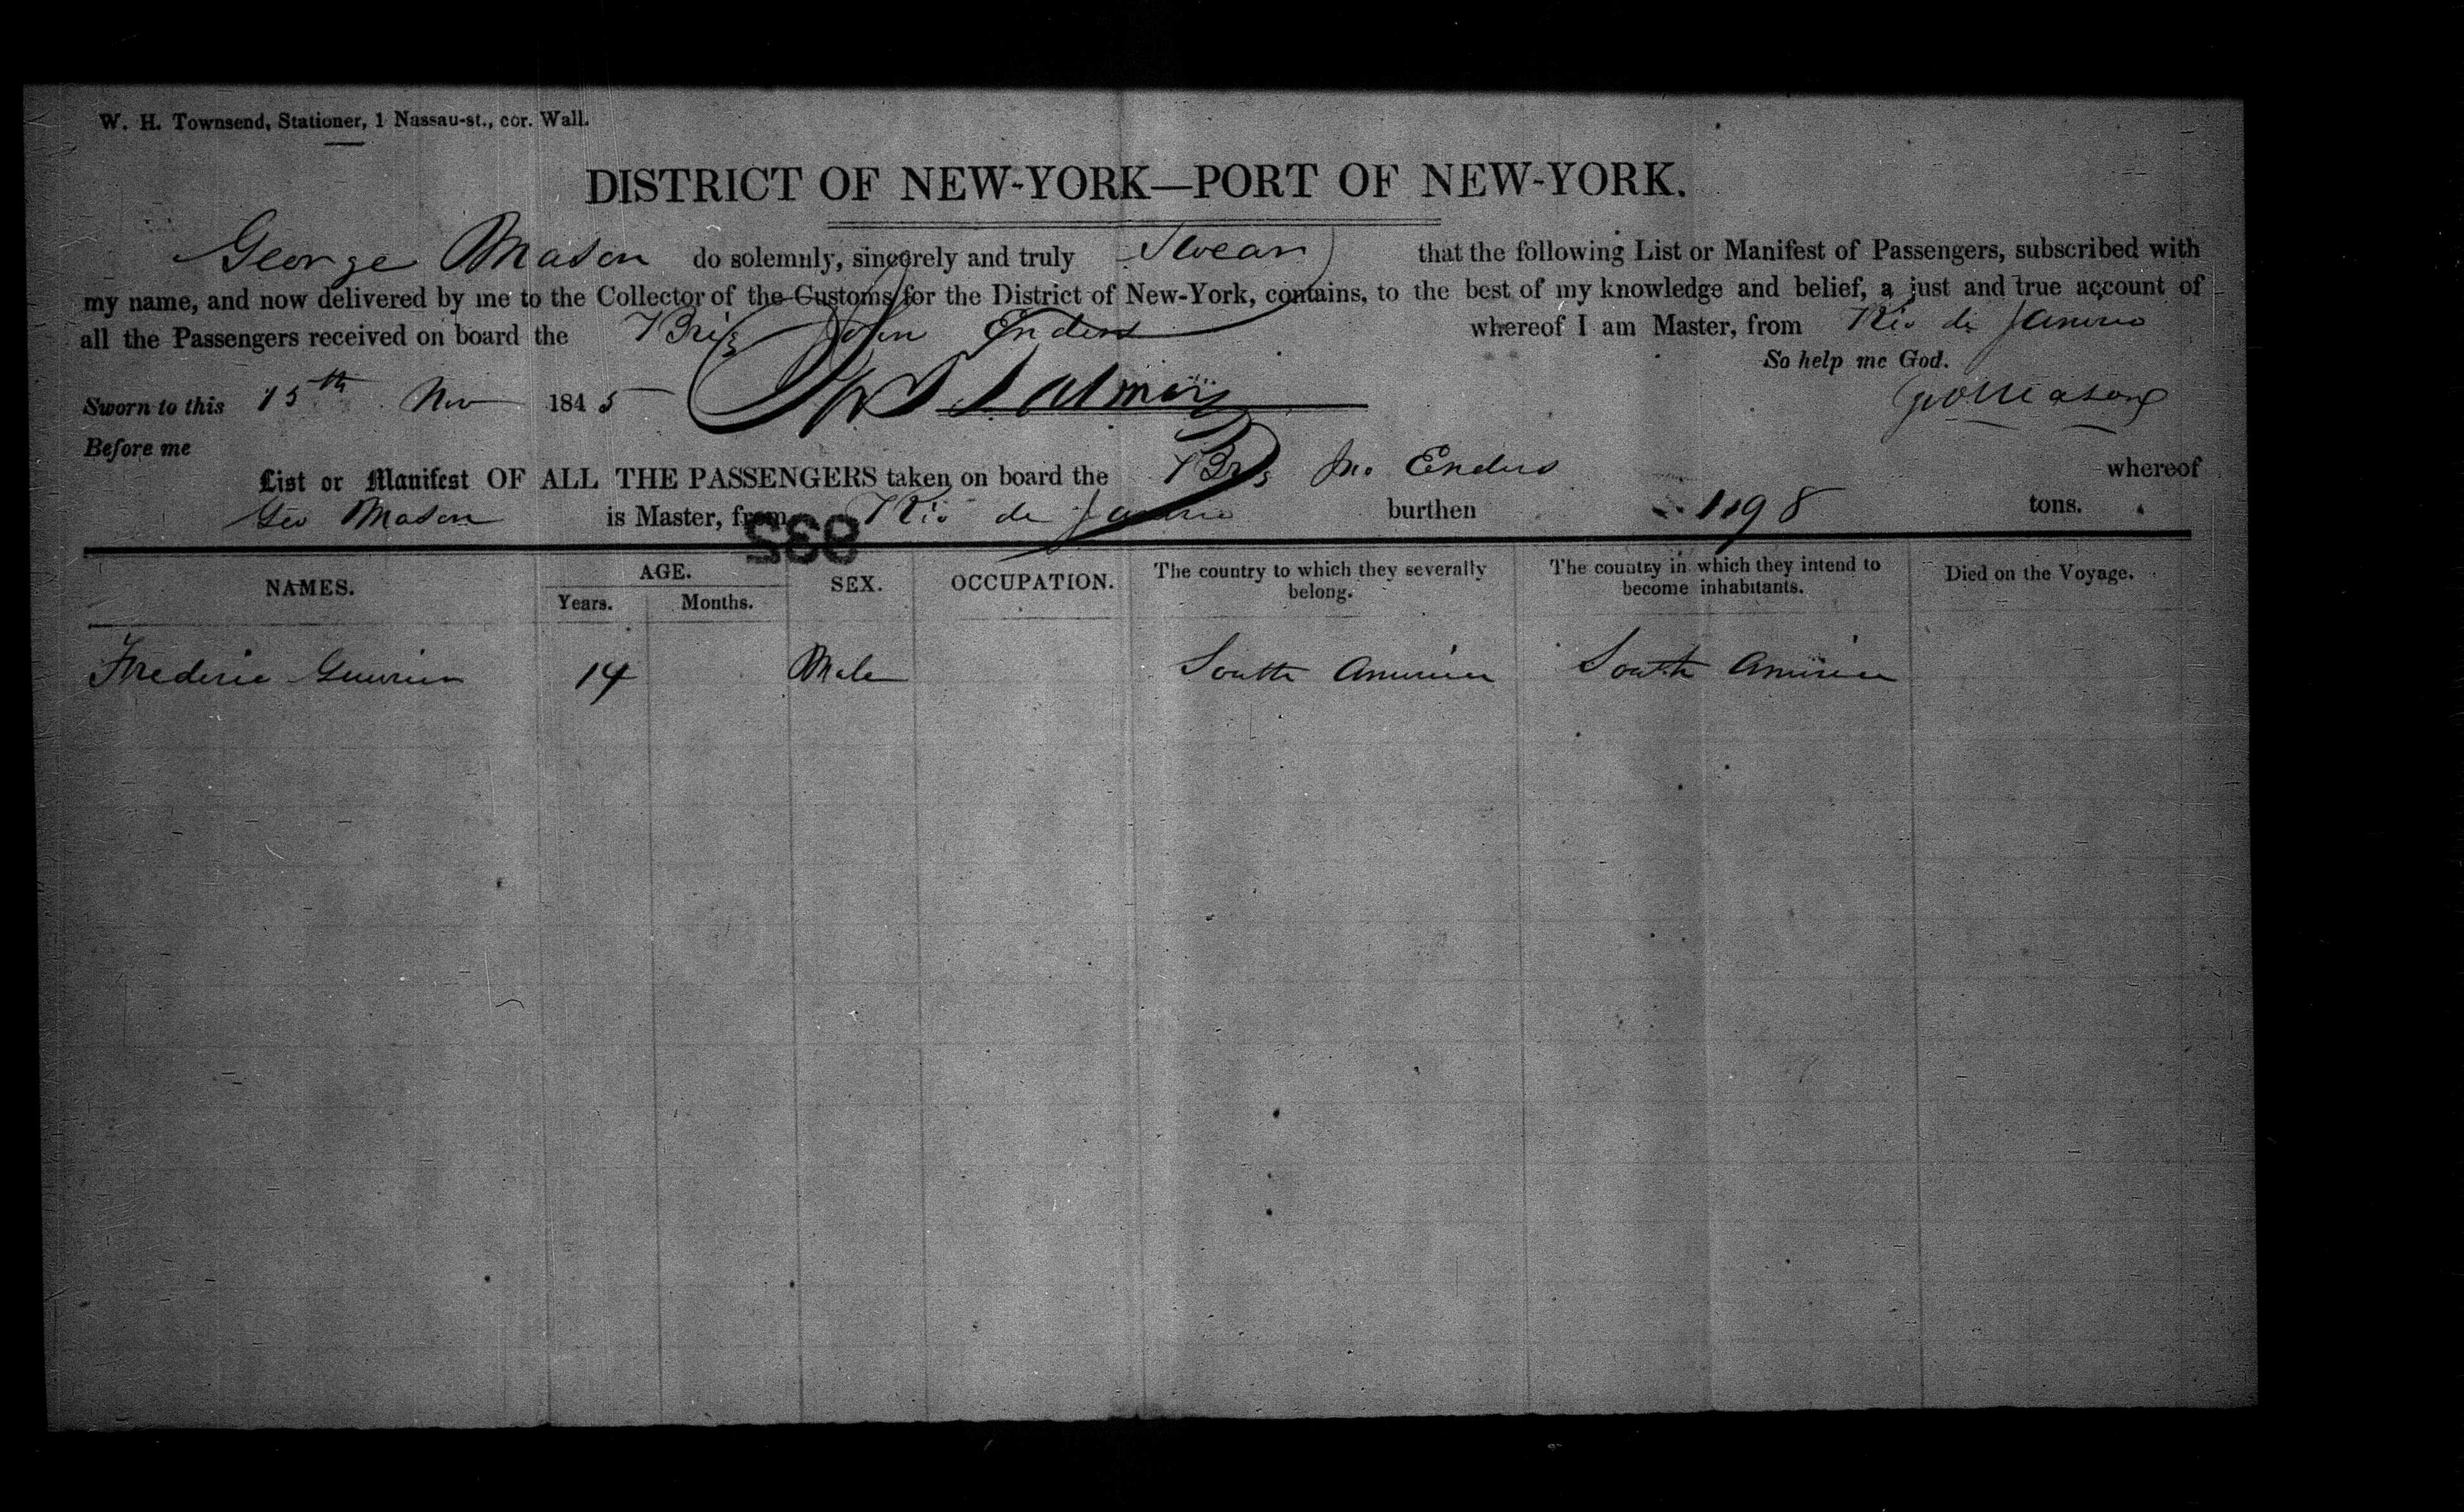 W. H. Townsend, Stationer, 1 Nassau-st., cor. Wall.
DISTRICT OF NEW-YORK—PORT OF NEW-YORK.
George Mason do solemnly, sincerely and truly Swear that the following List or Manifest of Passengers, subscribed with
my name, and now delivered by me to the Collector of the Customs for the District of New-York, contains, to the best of my knowledge and belief, a just and true account of
all the Passengers received on board the Brig John Enders whereof I am Master, from Rio de Janeiro
So help me God.
Sworn to this 15th Nov 1845
Geo Mason
Before me
List or Manifest OF ALL THE PASSENGERS taken on board the Brig Jno Enders whereof
Geo Mason is Master, from Rio de Janeiro burthen 198 tons.
832
NAMES. AGE. SEX. OCCUPATION. The country to which they severally belong. The country in which they intend to become inhabitants. Died on the Voyage.
Years. Months.
Frederic 14 Male South America South America